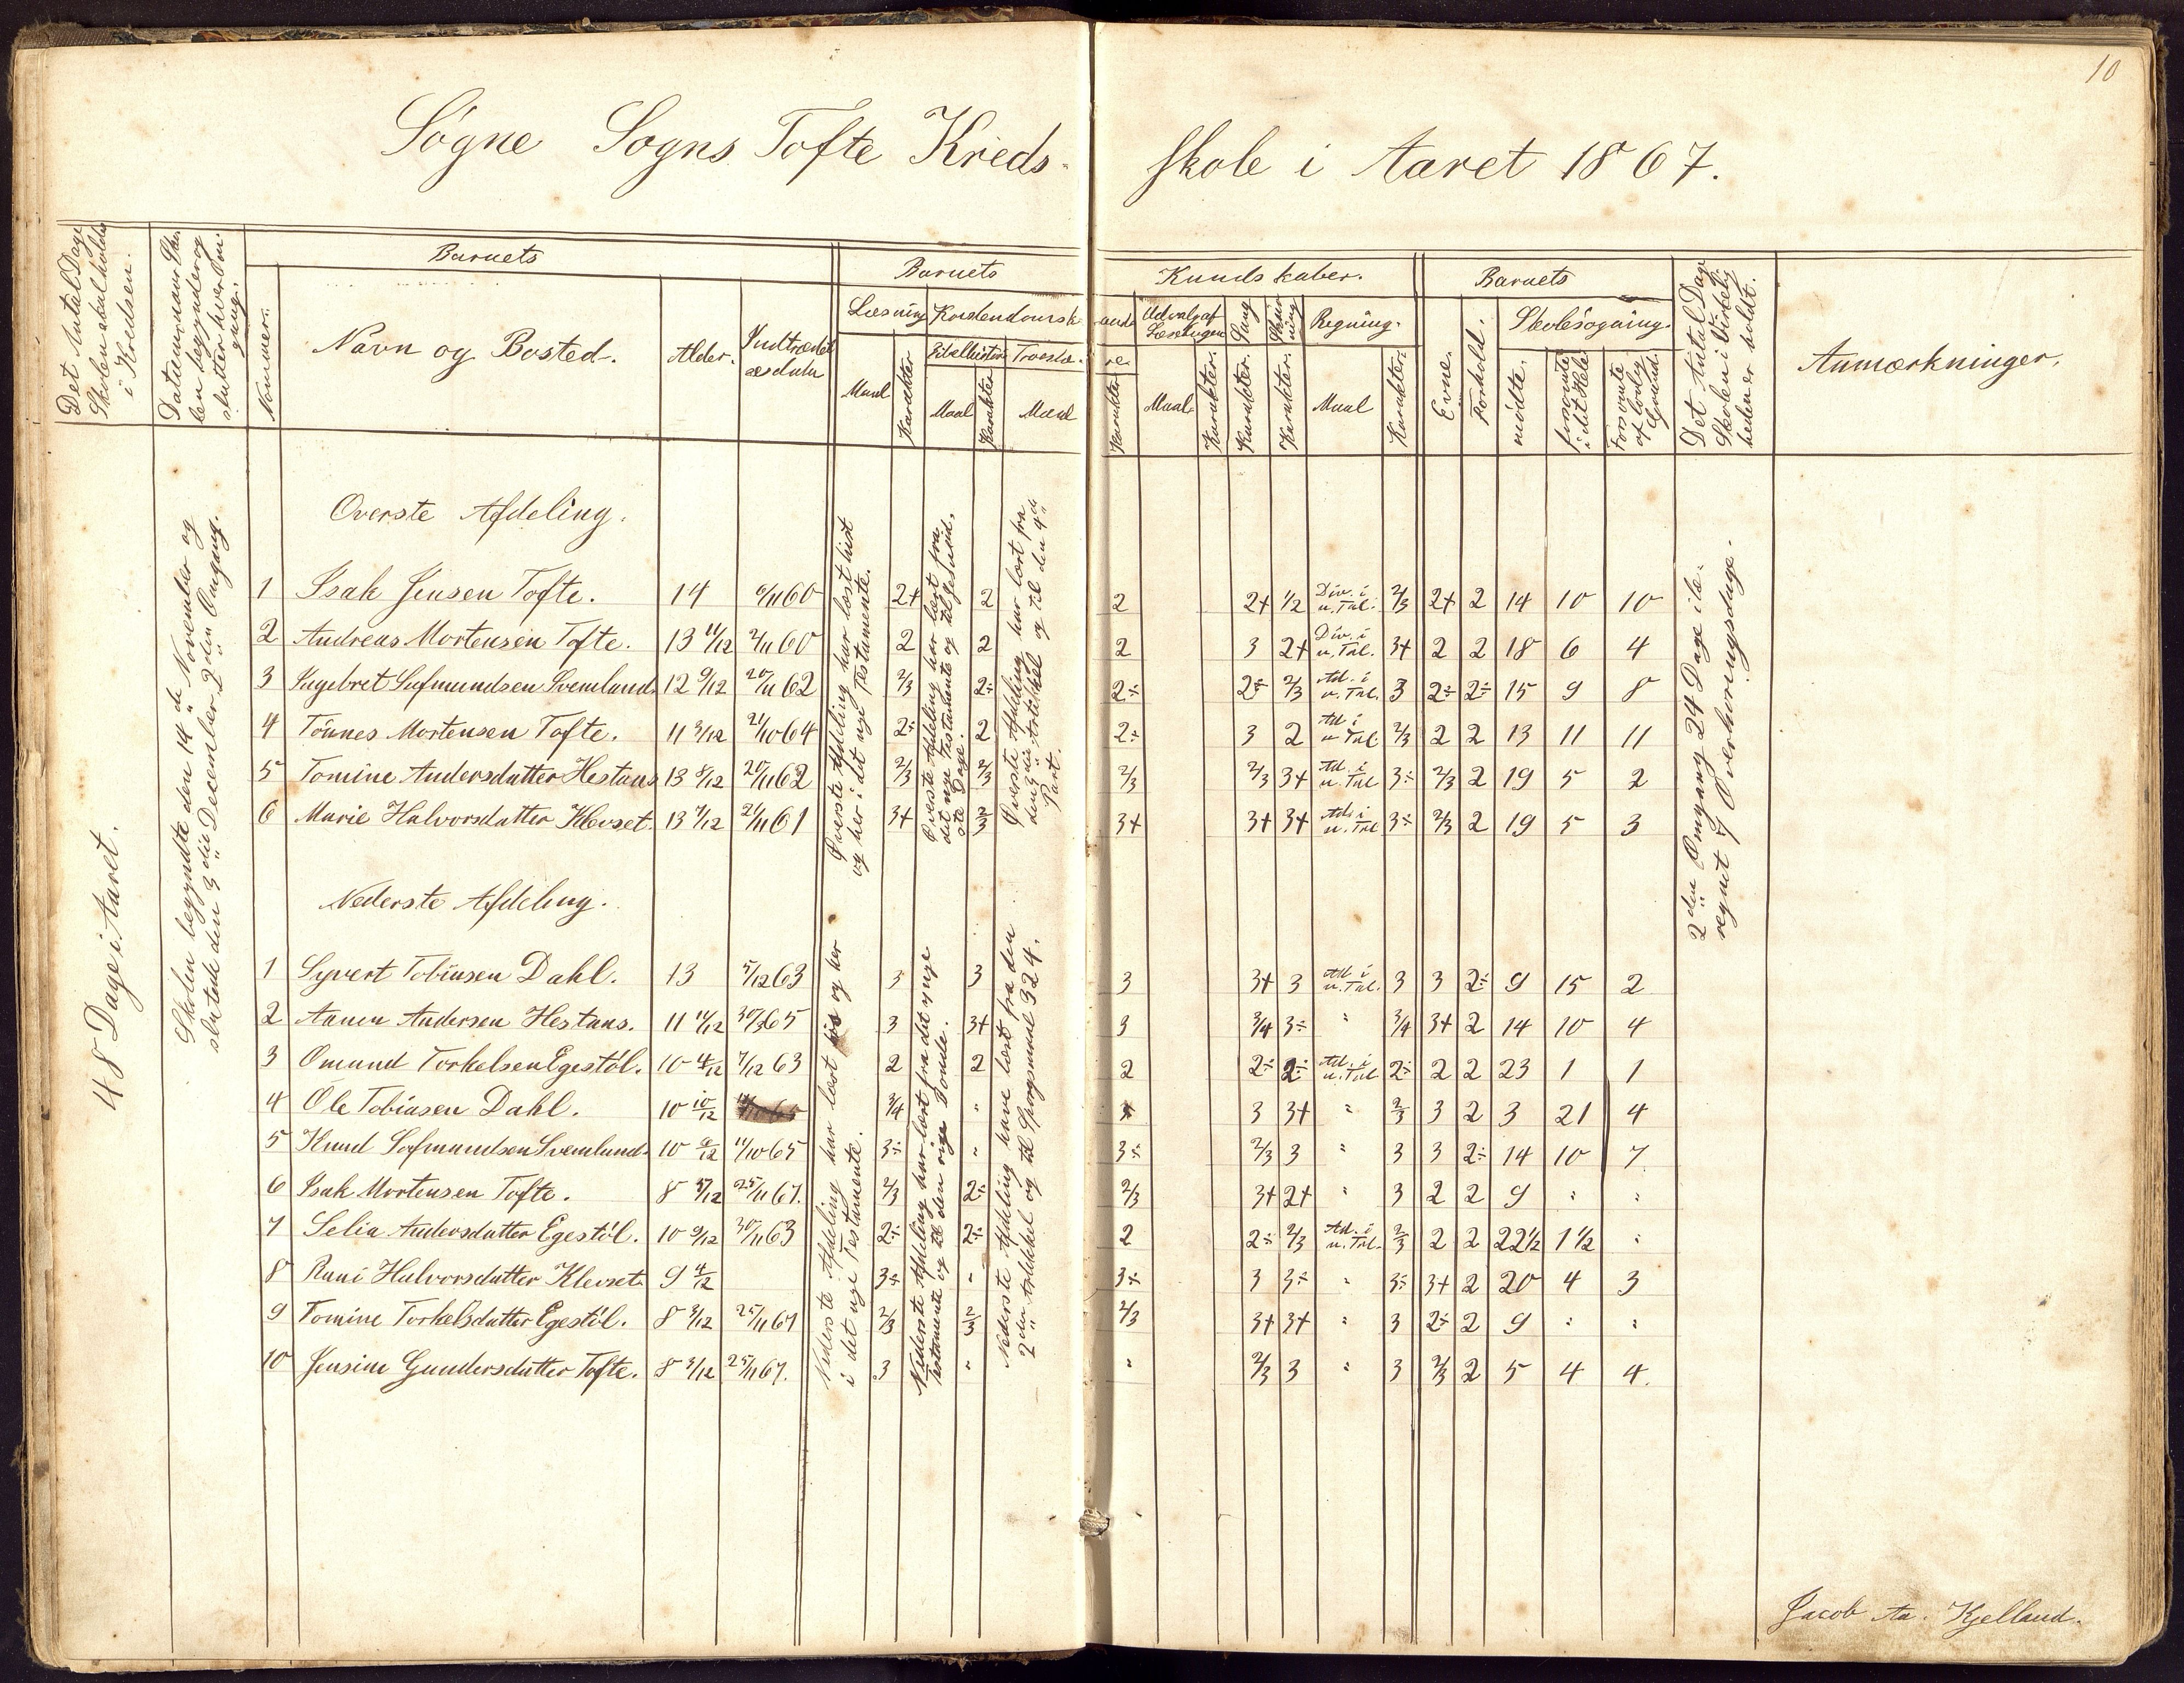 10
Søgne Sogns Tofte Kreds-
skole i Aaret 1867.
Det Antal Dage
Skolen skal holdes
i Kredsen.
Datum, naar Sko-
len begynder og
slutter hver Om-
gang.
Barnets
Nommer.
Navn og Bosted.
Alder.
Indtrædel-
Barnets
Læsning
Kristendomsk
Maal
Karakter
Bibelhistorie
Maal
Karakter
Troeslæ-
Maal
Kundskaber.
re.
Karakter
Udvalg af
Læsebogen
Maal
Karakter.
Sang
Karakter.
Skriv
ning
Karakter.
Regning.
Maal
Karakter.
Barnets
Evne.
Forhold.
Skolesøgning.
mødte.
forsømte
i det Hele.
Forsømte
af lovlig
Grund.
Det Antal Dage
Skolen i Virkelig-
heden er holdt.
Anmærkninger.
48 Dage i Aaret.
Skolen begyndte den 14de November og
sluttede den 3die December 2den Omgang.
Øverste Afdeling.
1 Isak Jensen Tofte. 14 6/11 60 2+ 2 2 2+ 1/2 Div. i u. Tal. 2/3 2+ 2 14 10 10
2 Andreas Mortensen Tofte. 13 11/12 2/11 60 2 2 2 3 2+ Div. i u. Tal. 3+ 2 2 18 6 4
3 Ingebret Sofmundsen Svemlund. 12 9/12 20/11 62 2/3 2÷ 2÷ 2÷ 2/3 Ad. i u. Tal. 3 2÷ 2÷ 15 9 8
4 Tönnes Mortensen Tofte. 11 3/12 21/10 64 2÷ 2 2÷ 3 2 Ad i u Tal 2/3 2 2 13 11 11
5 Tomine Andersdatter Hestaas 13 8/12 20/11 62 2/3 2/3 2/3 2/3 3+ Ad. i u. Tal 3÷ 2/3 2 19 5 2
6 Marie Halvorsdatter Klevset. 13 7/12 21/11 61 3+ 2/3 3+ 3+ 3+ Ad. i u. Tal 3÷ 2/3 2 19 5 3
Øverste Afdeling har læst hist
og her i det nye Testamente.
Øverste Afdeling har læst fra
det nye Testamente og til
Øverste Afdeling har læst fra
den 3die Artikkel og til den 4de
Part.
2den Omgang 24 Dage ibe-
regnet 7 Overhøringsdage.
Nederste Afdeling.
1 Syvert Tobiasen Dahl. 13 5/12 63 3 3 3 3+ 3 Ad i u. Tal. 3 3 2÷ 9 15 2
2 Aanen Andersen Hestaas. 11 11/12 30/3 65 3 3+ 3 3/4 3÷ " 3/4 3+ 2 14 10 4
3 Omund Torkelsen Egestöl. 10 4/12 7/12 63 2 2 2 2÷ 2÷ Ad. i u. Tal 2÷ 2 2 23 1 1
4 Ole Tobiasen Dahl. 10 10/12 3/4 " 3 3+ " 2/3 3 2 3 21 4
5 Knud Sofmundsen Svemlund. 10 2/12 11/10 65 3÷ " 3÷ 2/3 3 " 3 3 2÷ 14 10 7
6 Isak Mortensen Tofte. 8 7/12 25/11 67. 2/3 2÷ 2/3 3+ 2+ " 3 2 2 9 " "
7 Selia Andersdatter Egestöl. 10 9/12 30/11 63 2÷ 2÷ 2 2÷ 2/3 Ad. i u. Tal. 2/3 2 2 22 1/2 1 1/2 "
8 Rani Halvorsdatter Klevset. 9 4/12 3÷ " 3÷ 3 3÷ " 3÷ 3+ 2 20 4 3
9 Tomine Torkelsdatter Egestöl. 8 3/12 25/11 67 2/3 2/3 2/3 3+ 3+ " 3 2÷ 2 9 " "
10 Jensine Gundersdatter Tofte. 8 3/12 25/11 67. 3 " " 2/3 3 " 3 2/3 2 5 4 4.
Nederste Afdeling har læst og her
i det nye Testamente.
Nederste Afdeling har læst fra det nye
Testamente og til den rige Bonde.
Nederste Afdeling have læst fra den
2den Artikkel og til Spørgsmaal 324.
Jacob Aa. Kjelland.